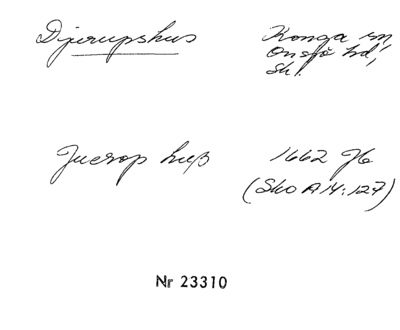 Djurupshus Konga sn,
Onsjö hd,
Sk.
Juerop huß 1662 Jb
(SkO A 14:127)
Nr 23310